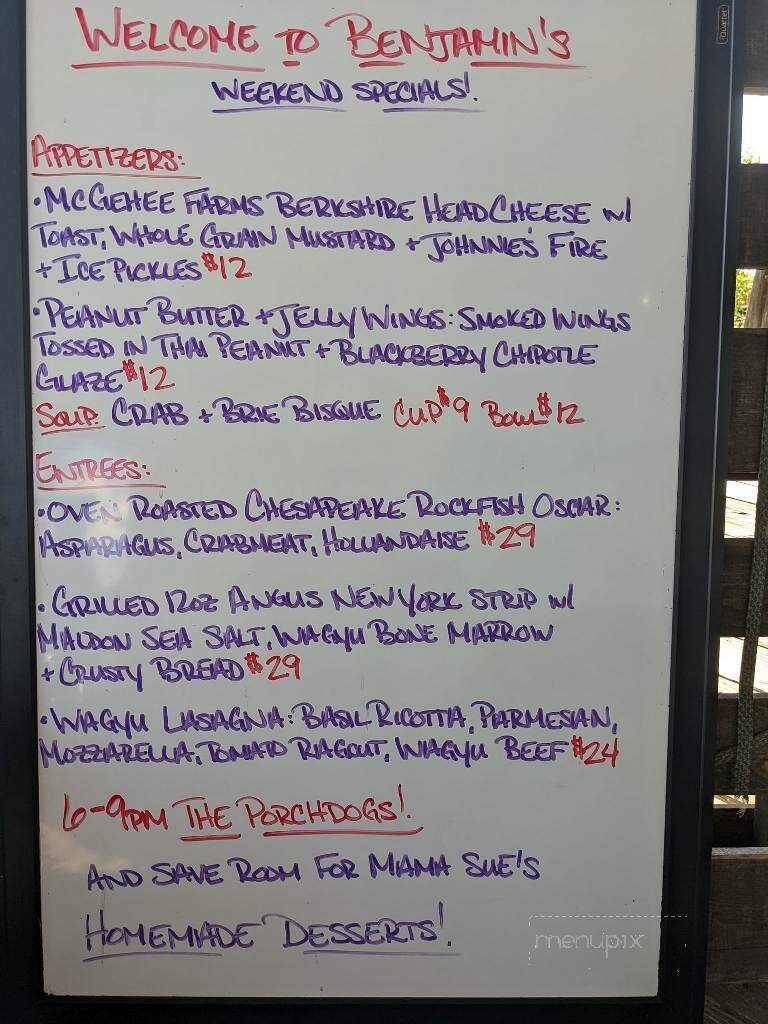 Quartet
WELCOME TO BENJAMIN'S
WEEKEND SPECIALS!
APPETIZERS:
• McGEHEE FARMS BERKSHIRE HEADCHEESE W/
TOAST, WHOLE GRAIN MUSTARD + JOHNNIE'S FIRE
+ ICE PICKLES $12
• PEANUT BUTTER + JELLY WINGS: SMOKED WINGS
TOSSED IN THAI PEANUT + BLACKBERRY CHIPOTLE
GLAZE $12
SOUP: CRAB + BRIE BISQUE CUP $9 BOWL $12
ENTREES:
• OVEN ROASTED CHESAPEAKE ROCKFISH OSCAR:
ASPARAGUS, CRABMEAT, HOLLANDAISE $29
• GRILLED 12OZ ANGUS NEW YORK STRIP W/
MALDON SEA SALT, WAGYU BONE MARROW
+ CRUSTY BREAD $29
• WAGYU LASAGNA: BASIL RICOTTA, PARMESAN,
MOZZARELLA, TOMATO RAGOUT, WAGYU BEEF $24
6-9PM THE PORCHDOGS!
AND SAVE ROOM FOR MAMA SUE'S
HOMEMADE DESSERTS!
menupix